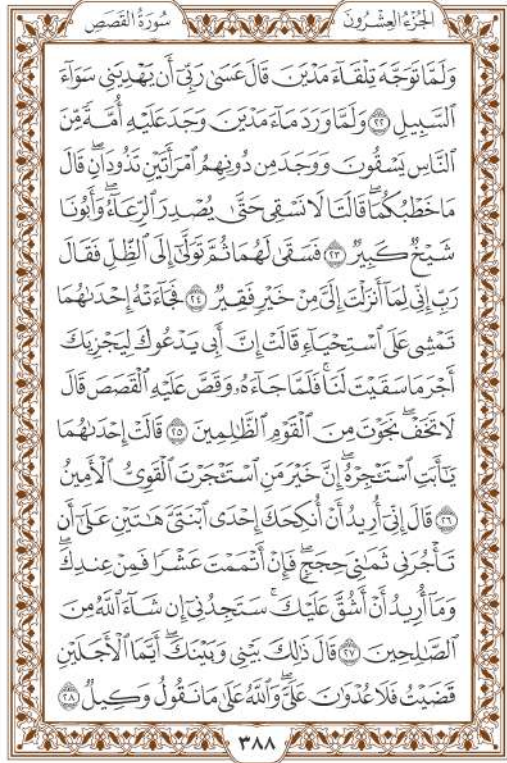 سُورَةُ القَصَصِ
الجُزْءُ العِشْرُونَ
وَلَمَّا تَوَجَّهَ تِلْقَآءَ مَدْيَنَ قَالَ عَسَىٰ رَبِّىٓ أَن يَهْدِيَنِى سَوَآءَ
ٱلسَّبِيلِ ٢٢ وَلَمَّا وَرَدَ مَآءَ مَدْيَنَ وَجَدَ عَلَيْهِ أُمَّةً مِّنَ
ٱلنَّاسِ يَسْقُونَ وَوَجَدَ مِن دُونِهِمُ ٱمْرَأَتَيْنِ تَذُودَانِۖ قَالَ
مَا خَطْبُكُمَاۖ قَالَتَا لَا نَسْقِى حَتَّىٰ يُصْدِرَ ٱلرِّعَآءُۖ وَأَبُونَا
شَيْخٌ كَبِيرٌ ٢٣ فَسَقَىٰ لَهُمَا ثُمَّ تَوَلَّىٰٓ إِلَى ٱلظِّلِّ فَقَالَ
رَبِّ إِنِّى لِمَآ أَنزَلْتَ إِلَىَّ مِنْ خَيْرٍ فَقِيرٌ ٢٤ فَجَآءَتْهُ إِحْدَىٰهُمَا
تَمْشِى عَلَى ٱسْتِحْيَآءٍ قَالَتْ إِنَّ أَبِى يَدْعُوكَ لِيَجْزِيَكَ
أَجْرَ مَا سَقَيْتَ لَنَاۚ فَلَمَّا جَآءَهُۥ وَقَصَّ عَلَيْهِ ٱلْقَصَصَ قَالَ
لَا تَخَفْۖ نَجَوْتَ مِنَ ٱلْقَوْمِ ٱلظَّٰلِمِينَ ٢٥ قَالَتْ إِحْدَىٰهُمَا
يَٰٓأَبَتِ ٱسْتَـْٔجِرْهُۖ إِنَّ خَيْرَ مَنِ ٱسْتَـْٔجَرْتَ ٱلْقَوِىُّ ٱلْأَمِينُ
٢٦ قَالَ إِنِّىٓ أُرِيدُ أَنْ أُنكِحَكَ إِحْدَى ٱبْنَتَىَّ هَٰتَيْنِ عَلَىٰٓ أَن
تَأْجُرَنِى ثَمَٰنِىَ حِجَجٍۖ فَإِنْ أَتْمَمْتَ عَشْرًا فَمِنْ عِندِكَۖ
وَمَآ أُرِيدُ أَنْ أَشُقَّ عَلَيْكَۚ سَتَجِدُنِىٓ إِن شَآءَ ٱللَّهُ مِنَ
ٱلصَّٰلِحِينَ ٢٧ قَالَ ذَٰلِكَ بَيْنِى وَبَيْنَكَۖ أَيَّمَا ٱلْأَجَلَيْنِ
قَضَيْتُ فَلَا عُدْوَٰنَ عَلَىَّۖ وَٱللَّهُ عَلَىٰ مَا نَقُولُ وَكِيلٌ ٢٨
٣٨٨